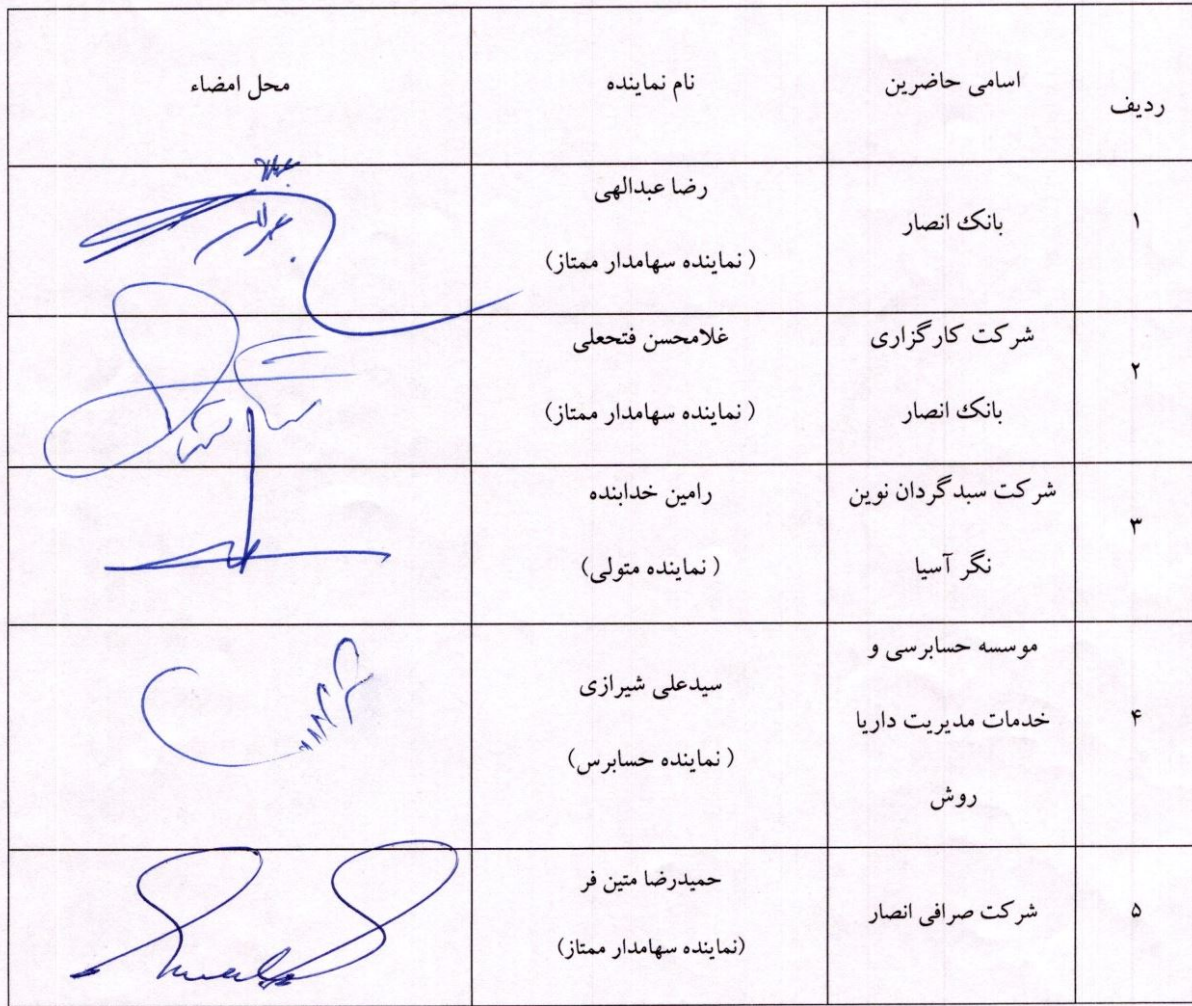 ردیف
اسامی حاضرین
نام نماینده
محل امضاء
۱
بانک انصار
رضا عبدالهی
( نماینده سهامدار ممتاز)
۲
شرکت کارگزاری
بانک انصار
غلامحسن فتحعلی
( نماینده سهامدار ممتاز)
۳
شرکت سبدگردان نوین
نگر آسیا
رامین خدابنده
( نماینده متولی)
۴
موسسه حسابرسی و
خدمات مدیریت داریا
روش
سیدعلی شیرازی
( نماینده حسابرس)
۵
شرکت صرافی انصار
حمیدرضا متین فر
(نماینده سهامدار ممتاز)